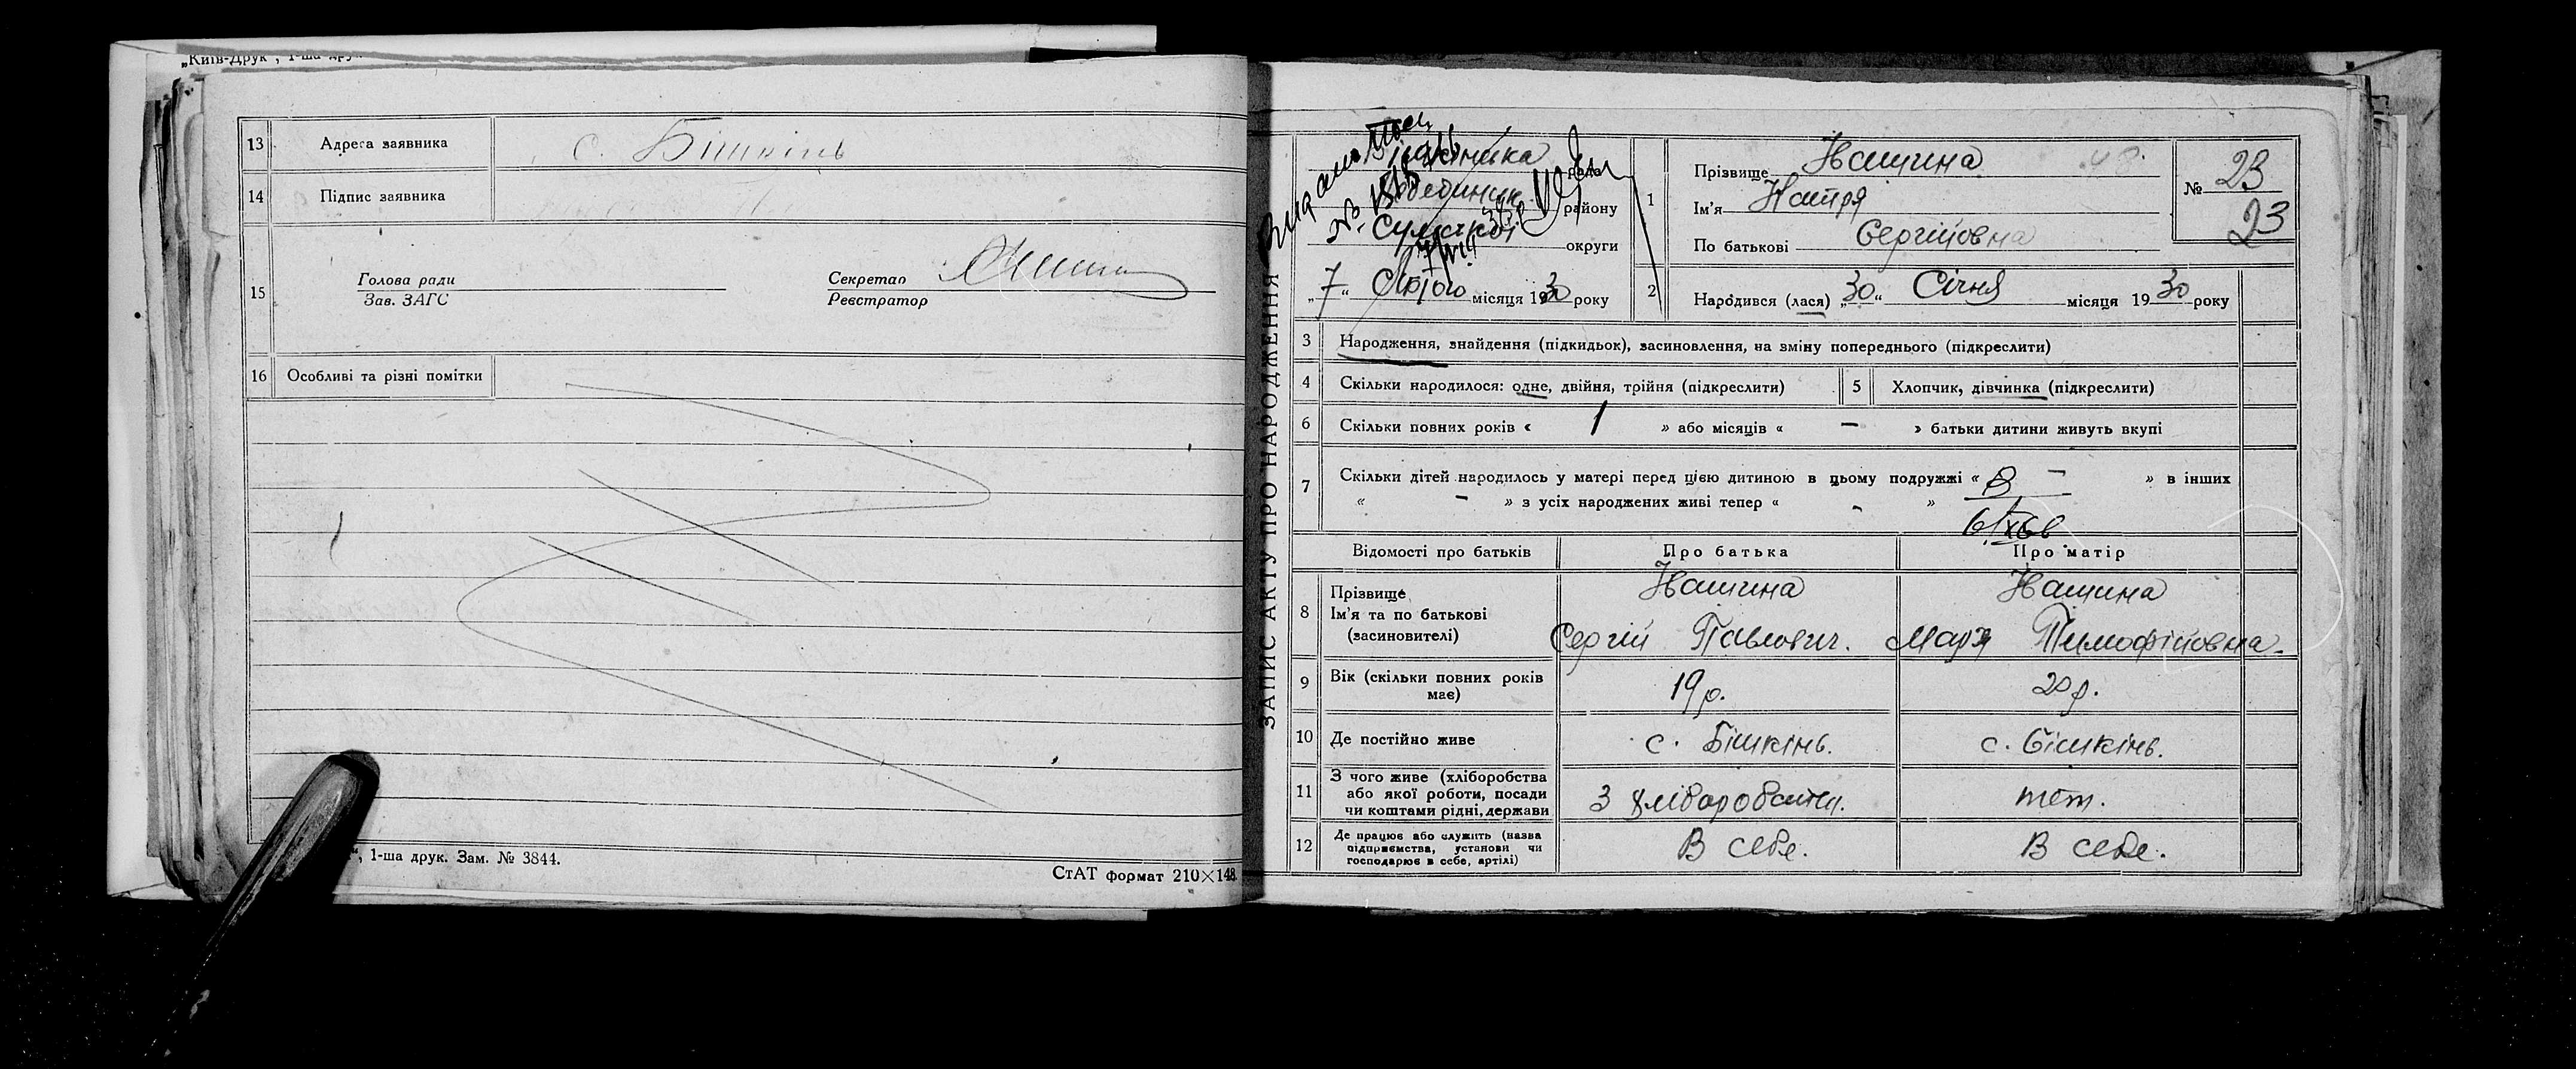 „Київ-Друк", 1-ша дру
13 Адреса заявника с. Бішкінь
14 Підпис заявника
15 Голова ради
Зав. ЗАГС
Секретар
Реєстратор
16 Особливі та різні помітки
1-ша друк. Зам. № 3844.
СтАТ формат 210×148
ЗАПИС АКТУ ПРО НАРОДЖЕННЯ
рада
району
Сумської округи
„7“ Лютого місяця 1930 року
1 Прізвище Івашина
Ім'я Настря
По батькові Сергійовна
№ 23
23
2 Народився (лася) „30“ Січня місяця 1930 року
3 Народження, знайдення (підкидьок), засиновлення, на зміну попереднього (підкреслити)
4 Скільки народилося: одне, двійня, трійня (підкреслити)
5 Хлопчик, дівчинка (підкреслити)
6 Скільки повних років « 1 » або місяців « — » батьки дитини живуть вкупі
7 Скільки дітей народилось у матері перед цією дитиною в цьому подружжі « — » в інших
« — » з усіх народжених живі тепер « - »
Відомості про батьків Про батька Про матір
8 Прізвище
Ім'я та по батькові
(засиновителі)
Івашина
Сергій Павлович.
Івашина
Марія Тимофійовна.
9 Вік (скільки повних років
має)
19 р.
20 р.
10 Де постійно живе с. Бішкінь. с. Бішкінь.
11 З чого живе (хліборобства
або якої роботи, посади
чи коштами рідні, держави
З хліборобства.
теж.
12 Де працює або служить (назва
підприємства, установи чи
господарює в себе, артілі)
В себе.
В себе.